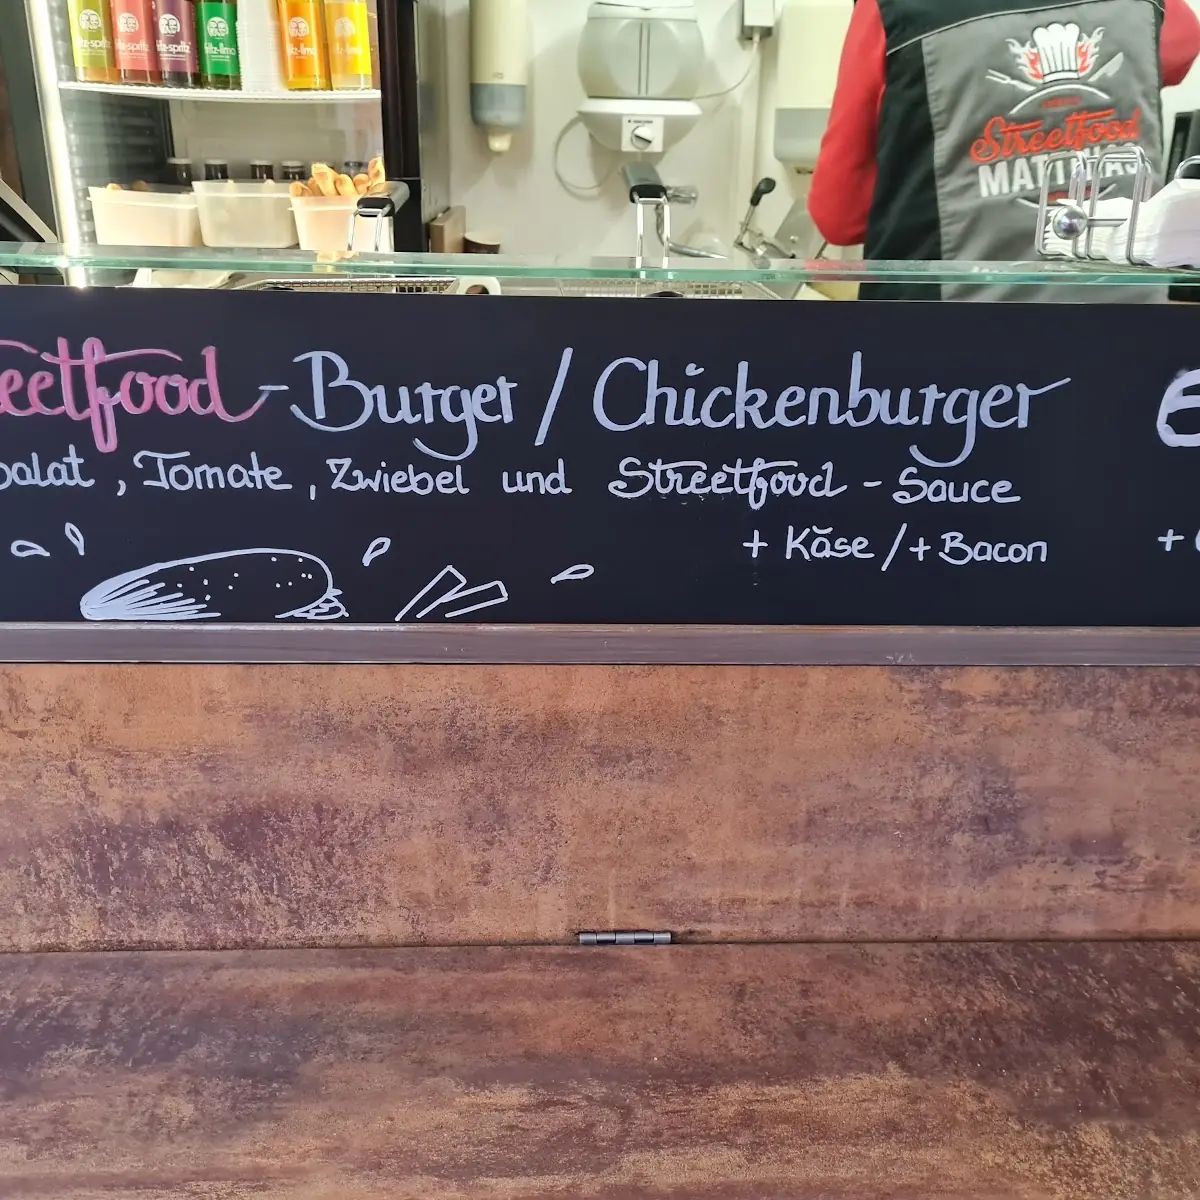 fritz-spritz fritz-spritz fritz-spritz fritz-limo fritz-limo fritz-limo
Streetfood
MATTHIAS
eetfood-Burger / Chickenburger
alat, Tomate, Zwiebel und Streetfood - Sauce
+ Käse / + Bacon
+